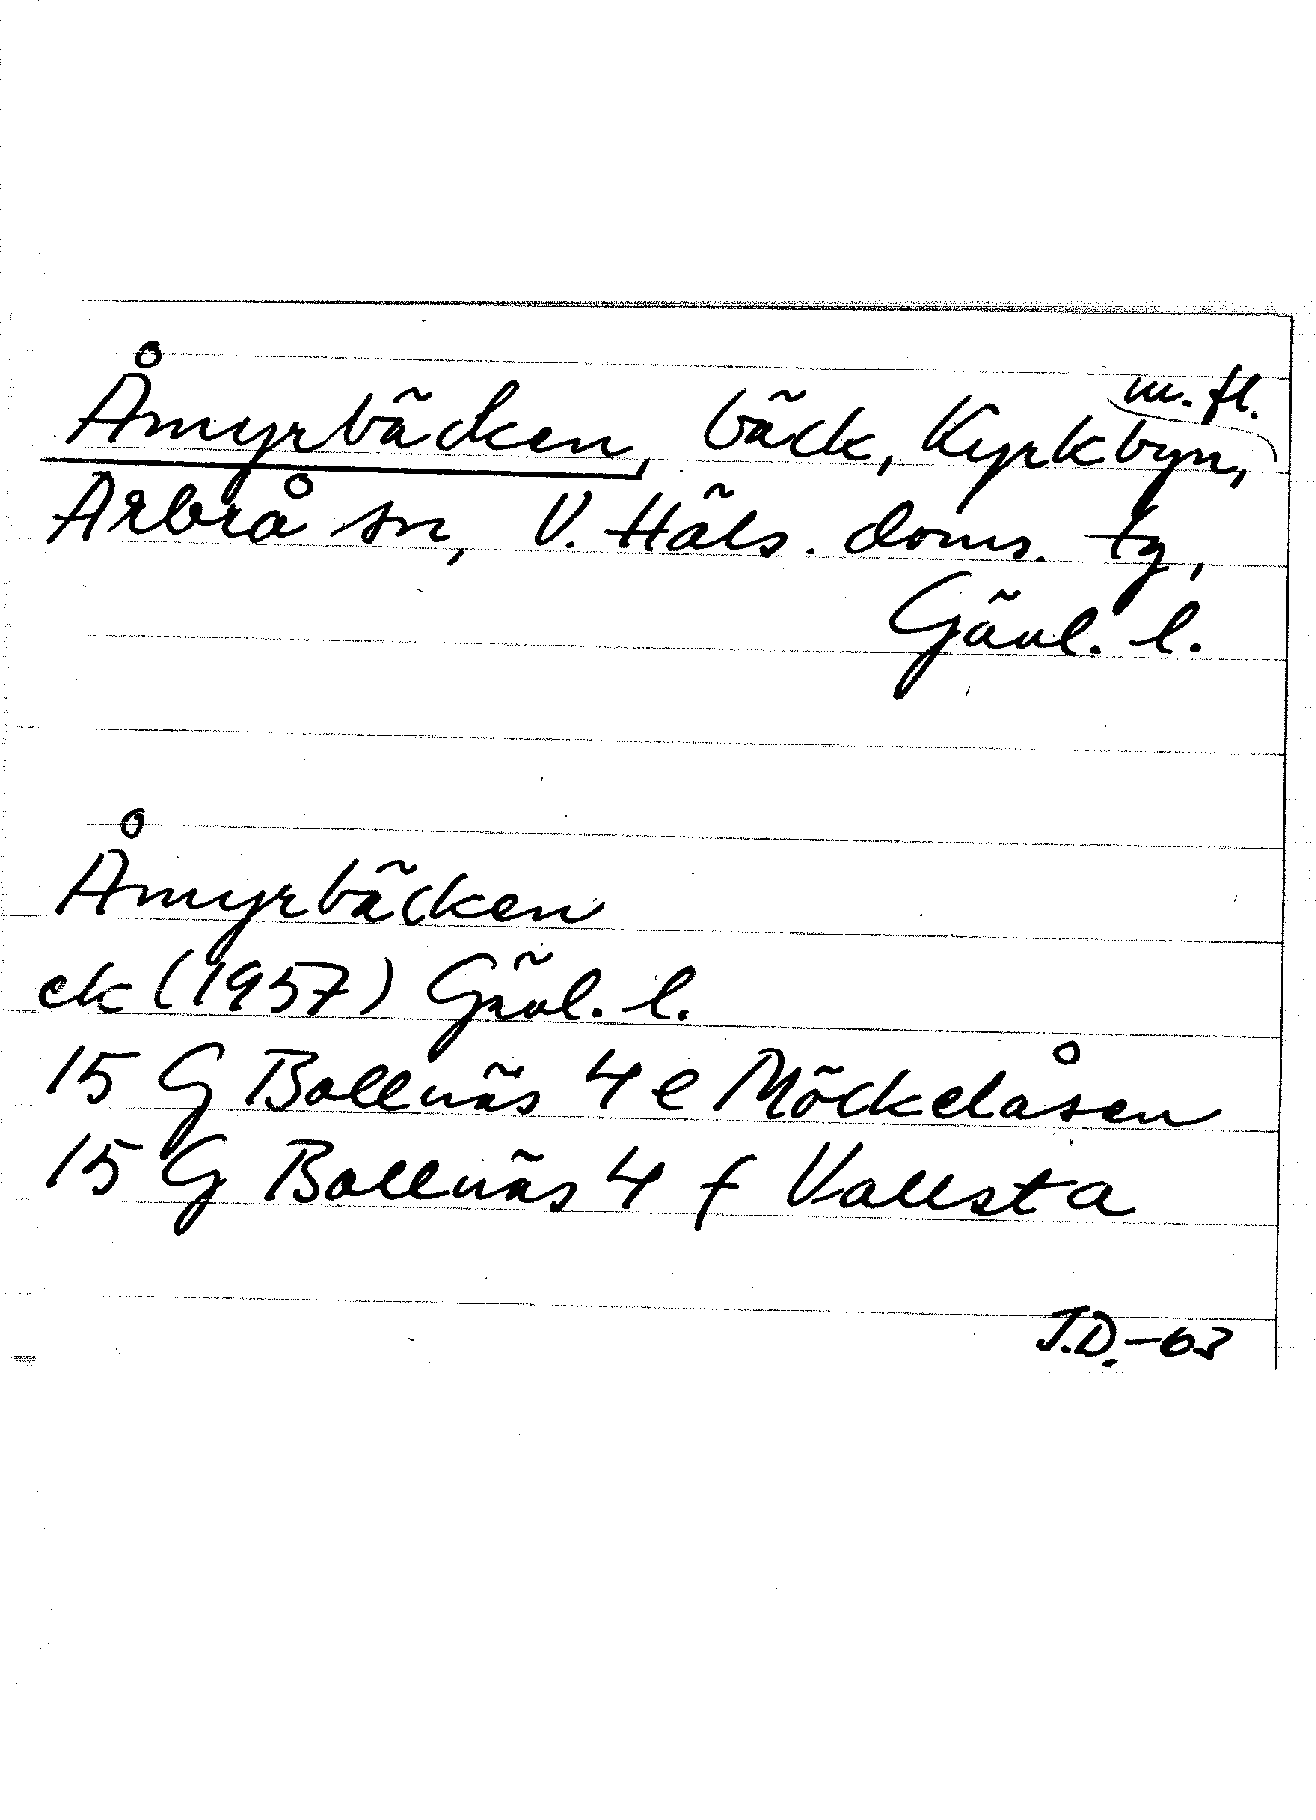 Åmyrbäcken, bäck, Kyrkbyn, m.fl.
Arbrå sn, V. Häls. doms. tg,
Gävl. l.
Åmyrbäcken
ek (1957) Gävl. l.
15 G Bollnäs 4 e Möckelåsen
15 G Bollnäs 4 f Vallsta
J.D.-63